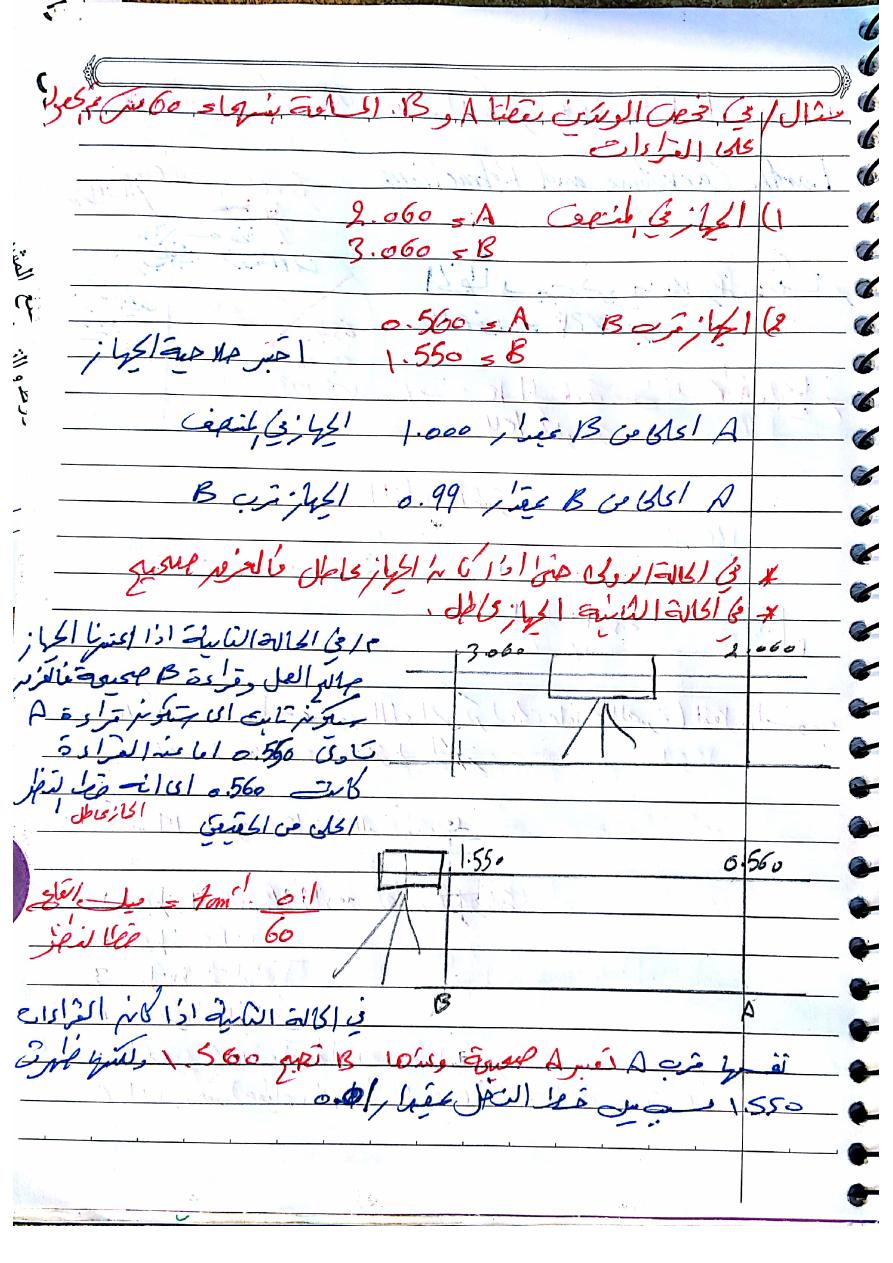 مثال / في فحص الوتدين نقطتا A و B. المسافة بينهما 60 متر تم الحصول
على القراءات
1) الجهاز في المنتصف 2.060 = A
3.060 = B
2) الجهاز قرب B 0.560 = A
1.550 = B اختبر صلاحية الجهاز
A اعلى من B بمقدار 1.000 الجهاز في المنتصف
A اعلى من B بمقدار 0.99 الجهاز قرب B
* في الحالة الاولى حتى اذا كان الجهاز عاطل فالفرق صحيح
* في الحالة الثانية الجهاز عاطل.
م / في الحالة الثانية اذا اعتبرنا الجهاز
صالح للعمل وقراءة B صحيحة فالفرق
سيكون ثابت اي ستكون قراءة A
تساوي 0.550 اما عند القراءة
كانت 0.560 اي انه خط النظر
اعلى من الحقيقي
الجهاز عاطل
3.060
2.060
1.550
0.560
B
A
ميل ارتفاع = tan⁻¹ 0.01
خط النظر 60
في الحالة الثانية اذا كانت القراءات
نفسها قرب A نعتبر A صحيحة وعندها B تصبح 1.560 ولكنها ظهرت
1.550 بسبب ميل خط النظر بمقدار 0.01